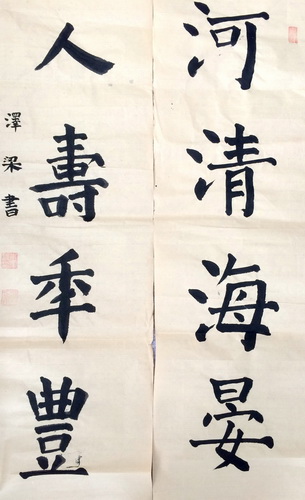 河清海晏
人壽年豐
澤梁書